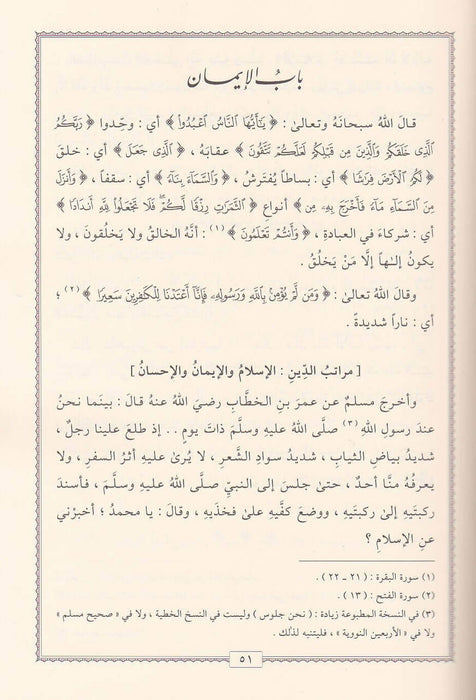 بابُ الإيمان
قالَ اللهُ سبحانَهُ وتعالىٰ : ﴿ يَٰٓأَيُّهَا ٱلنَّاسُ ٱعْبُدُوا۟ ﴾ أي : وحِّدوا ﴿ رَبَّكُمُ
ٱلَّذِى خَلَقَكُمْ وَٱلَّذِينَ مِن قَبْلِكُمْ لَعَلَّكُمْ تَتَّقُونَ ﴾ عقابَهُ ، ﴿ ٱلَّذِى جَعَلَ ﴾ أي : خلقَ
﴿ لَكُمُ ٱلْأَرْضَ فِرَٰشًا ﴾ أي : بساطاً يُفترَشُ ، ﴿ وَٱلسَّمَآءَ بِنَآءً ﴾ أي : سقفاً ، ﴿ وَأَنزَلَ
مِنَ ٱلسَّمَآءِ مَآءً فَأَخْرَجَ بِهِۦ مِنَ ﴾ أنواعِ ﴿ ٱلثَّمَرَٰتِ رِزْقًا لَّكُمْ فَلَا تَجْعَلُوا۟ لِلَّهِ أَندَادًا ﴾
أي : شركاءَ في العبادةِ ، ﴿ وَأَنتُمْ تَعْلَمُونَ ﴾ (١) : أنَّهُ الخالقُ ولا يَخلُقونَ ، ولا
يكونُ إلـٰهاً إلَّا مَنْ يَخلُقُ .
وقالَ اللهُ تعالىٰ : ﴿ وَمَن لَّمْ يُؤْمِنۢ بِٱللَّهِ وَرَسُولِهِۦ فَإِنَّآ أَعْتَدْنَا لِلْكَٰفِرِينَ سَعِيرًا ﴾ (٢) ؛
أي : ناراً شديدةً .
[ مراتبُ الدِّينِ : الإسلامُ والإيمانُ والإحسانُ ]
وأخرجَ مسلمٌ عن عمرَ بنِ الخطَّابِ رضيَ اللهُ عنهُ قالَ : بينَما نحنُ
عندَ رسولِ اللهِ (٣) صلَّى اللهُ عليهِ وسلَّمَ ذاتَ يومٍ . . إذ طلعَ علينا رجلٌ ،
شديدُ بياضِ الثيابِ ، شديدُ سوادِ الشَّعرِ ، لا يُرىٰ عليهِ أثرُ السفرِ ، ولا
يعرفُهُ منَّا أحدٌ ، حتىٰ جلسَ إلى النبيِّ صلَّى اللهُ عليهِ وسلَّمَ ، فأسندَ
ركبتَيهِ إلىٰ ركبتَيهِ ، ووضعَ كفَّيهِ علىٰ فخذَيهِ ، وقالَ : يا محمدُ ؛ أخبرْني
عنِ الإسلامِ ؟
(١) سورة البقرة : ( ٢١ ـ ٢٢ ) .
(٢) سورة الفتح : ( ١٣ ) .
(٣) في النسخة المطبوعة زيادة : ( نحن جلوس ) وليست في النسخ الخطية ، ولا في « صحيح مسلم »
ولا في « الأربعين النووية » ، فليتنبه لذلك .
٥١